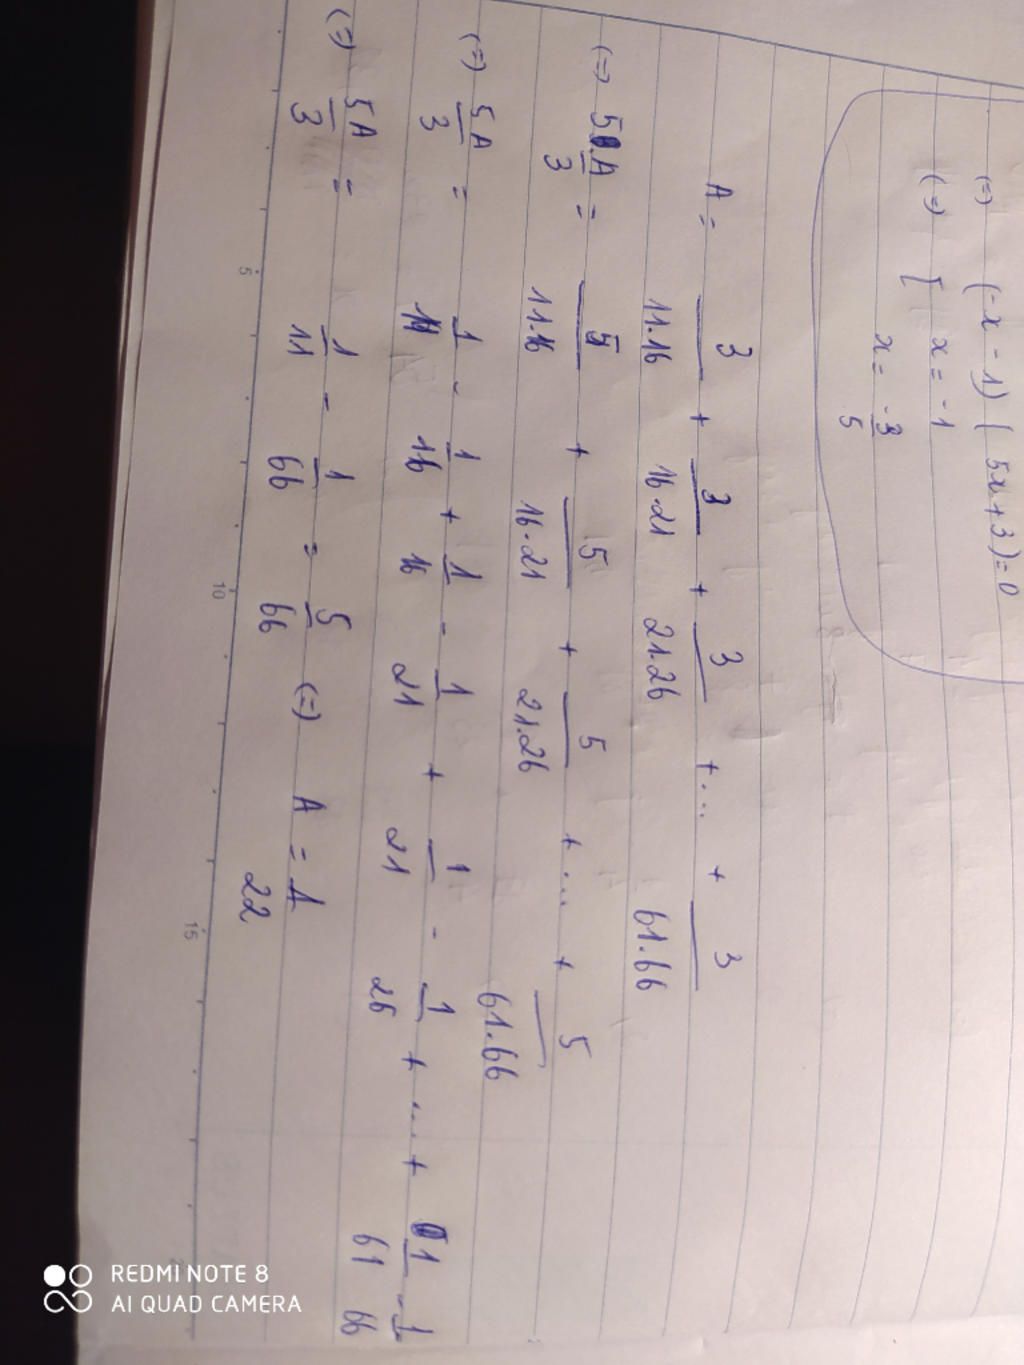 (=) (-x-1)(5x+3)=0
(=) [ x = -1
x = -3/5
A = 3/11.16 + 3/16.21 + 3/21.26 +... + 3/61.66
(=) 5.A/3 = 5/11.16 + 5/16.21 + 5/21.26 +... + 5/61.66
(=) 5A/3 = 1/11 - 1/16 + 1/16 - 1/21 + 1/21 - 1/26 + ... + 1/61 - 1/66
(=) 5A/3 = 1/11 - 1/66 = 5/66 (=) A = 1/22
5 10 15
REDMI NOTE 8
AI QUAD CAMERA